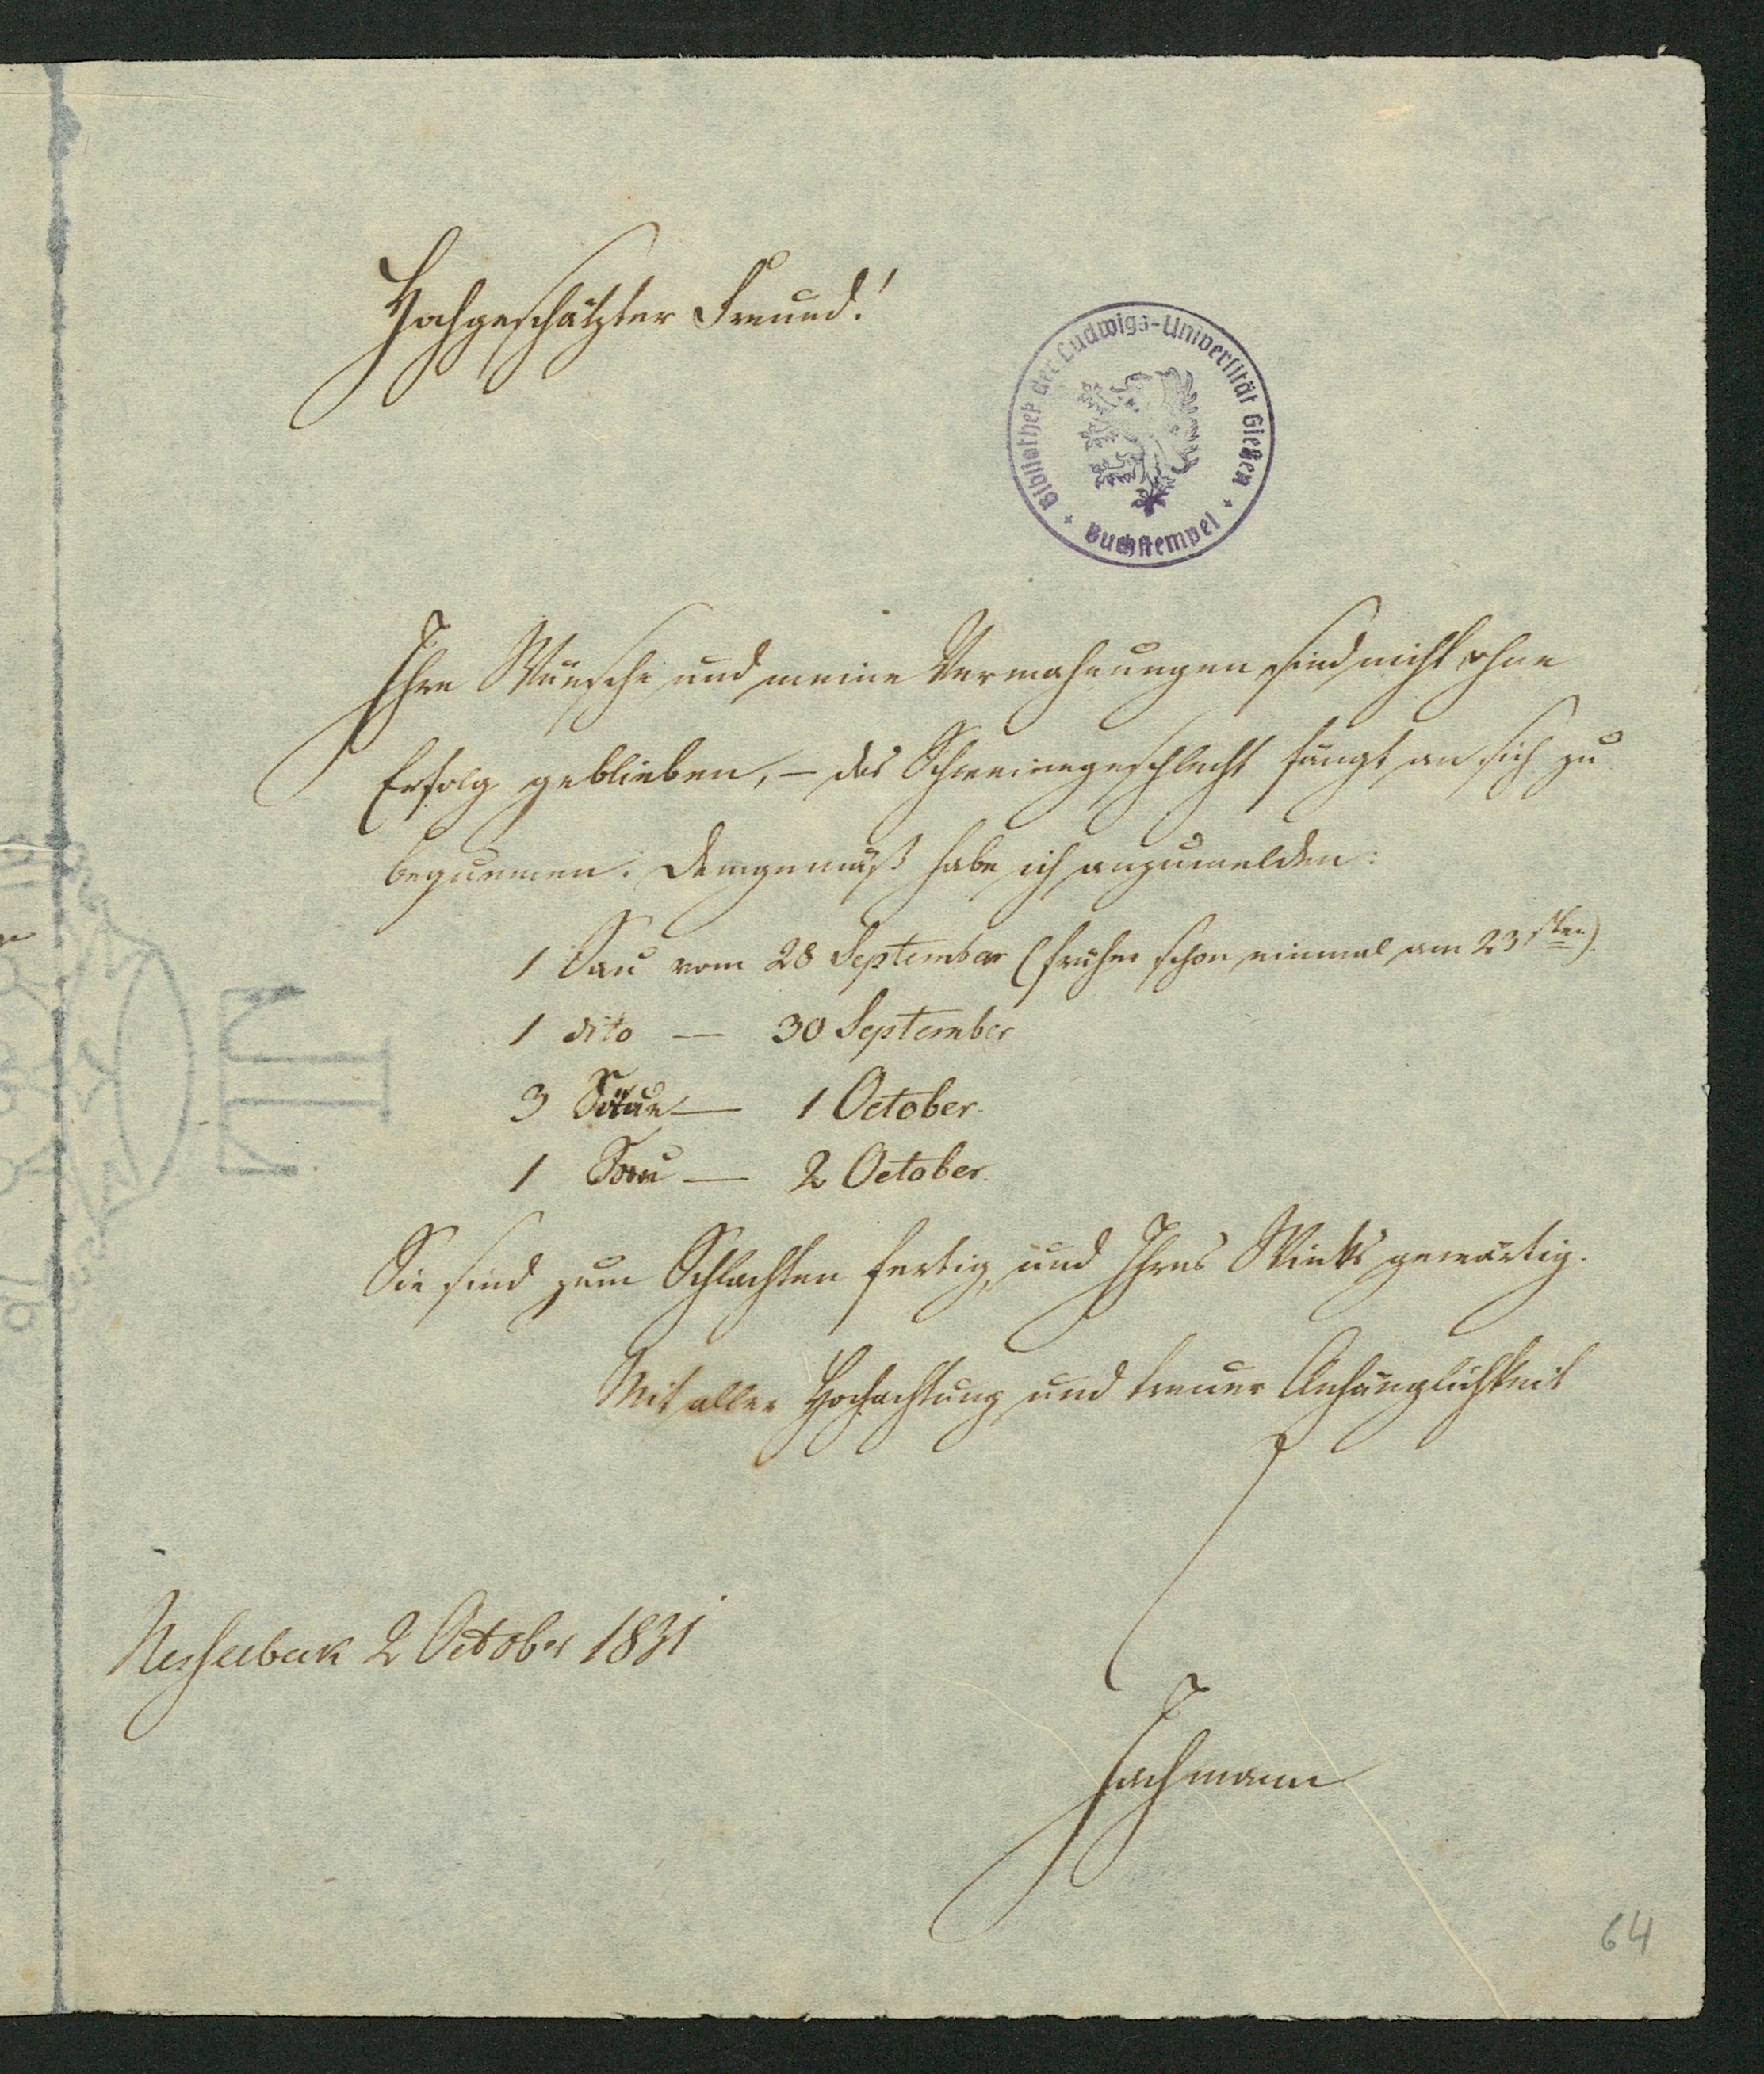 Hochgeschätzter Freund!
Bibliothek der Ludwigs-Universität Gießen
Buchstempel
Ihre Wünsche und meine Vermahnungen sind nicht ohne
Erfolg geblieben, – das Schweinegeschlecht fängt an sich zu
bequemen. Demgemäß habe ich anzumelden:
1 Sau vom 28 September (früher schon einmal am 23sten).
1 dito — 30 September
3 Säue — 1 October.
1 Sau — 2 October.
Sie sind zum Schlachten fertig, und Ihres Winks gewärtig.
Mit aller Hochachtung und treuer Anhänglichkeit
Nesselbeck 2 October 1831
Jachmann
64